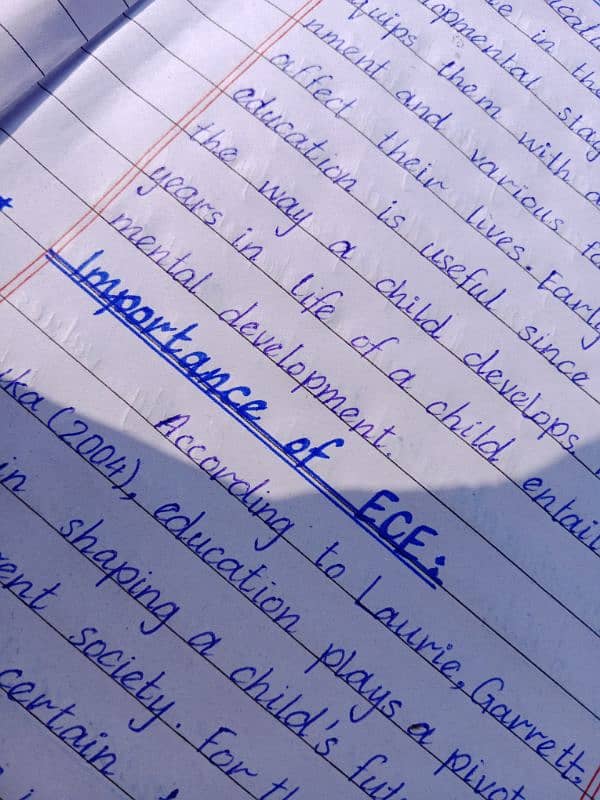 in the
opmental stag
quips them with a
nment and various fa
affect their lives. Early
education is useful since
the way a child develops.
years in life of a child entail
mental development.
Importance of ECE:
According to Laurie, Garrett,
ka (2004), education plays a pivot
in shaping a child's fut
ent society. For th
certain